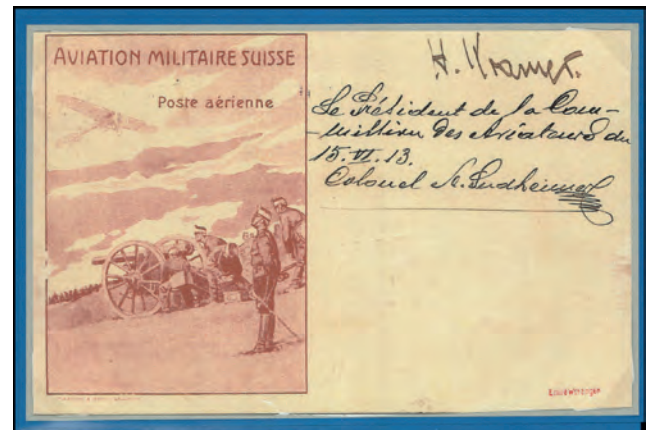 AVIATION MILITAIRE SUISSE
Poste aérienne
H. Kramer.
Le Président de la Com-
-mission des Aviateurs du
15. VI. 13.
Colonel